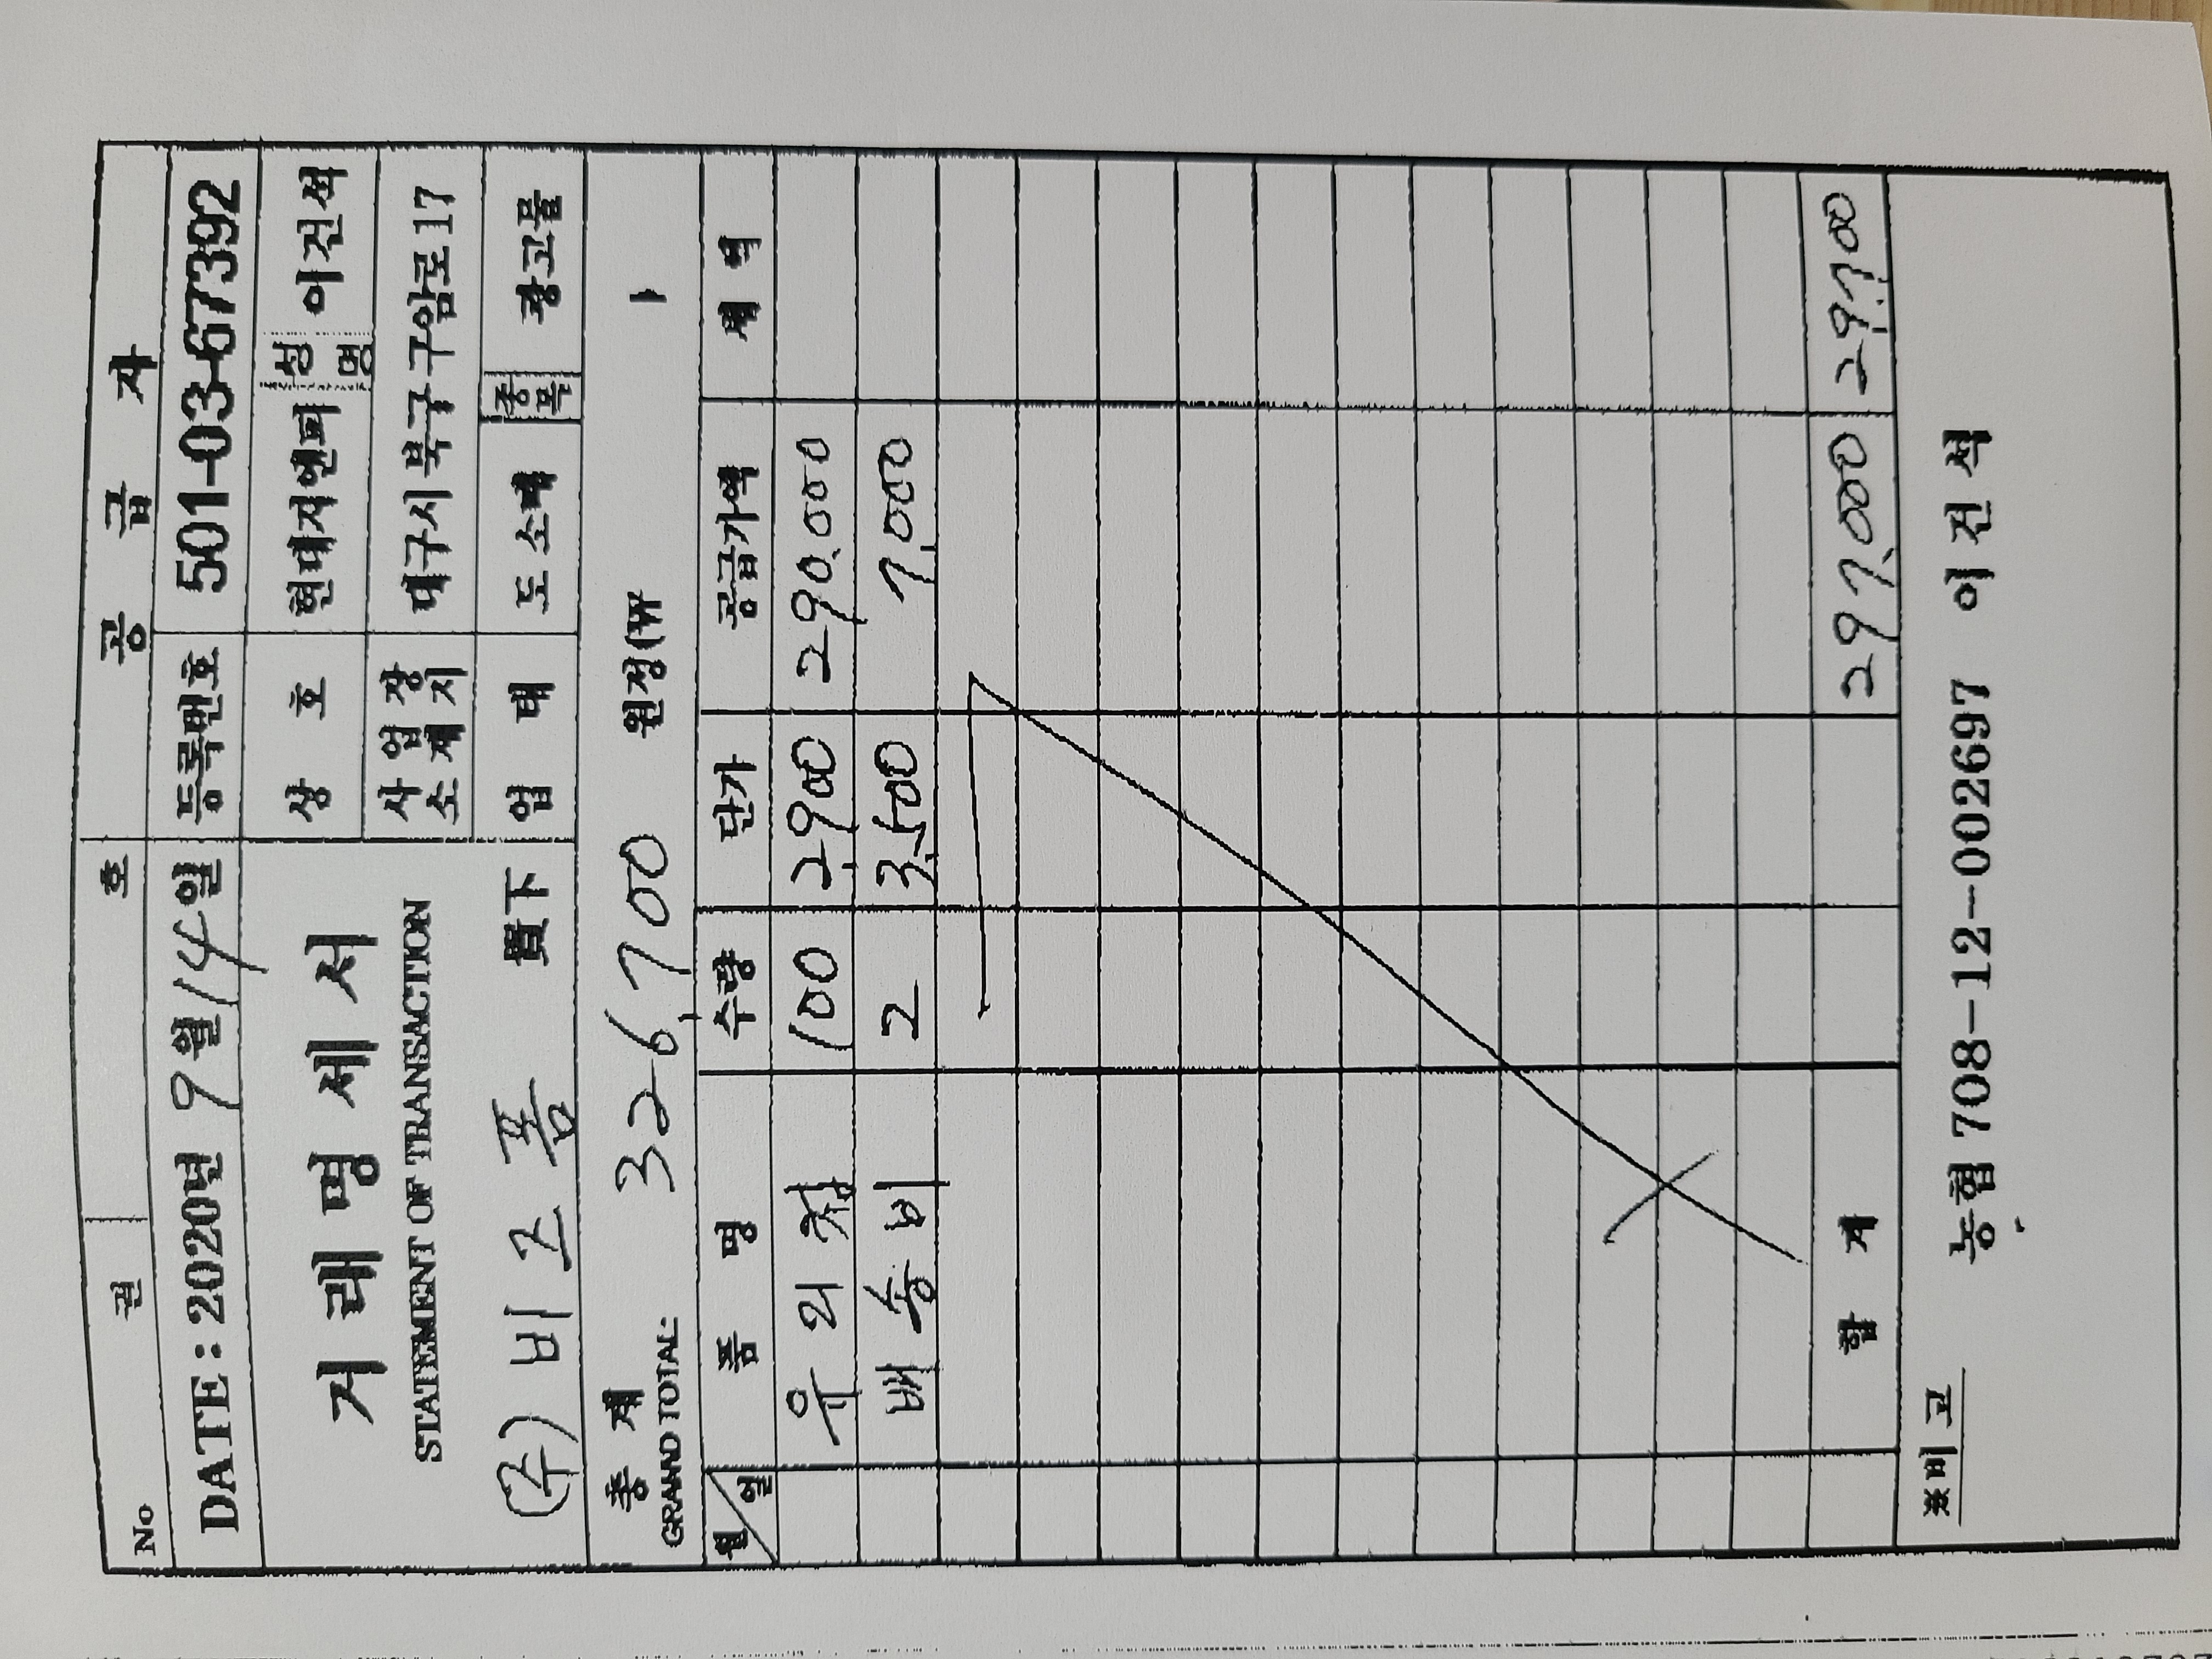 No 권 호
공 급 자
DATE : 2020년 9월 14일
등록번호 501-03-67392
거 래 명 세 서
STATEMENT OF TRANSACTION
상 호 현대지앤피 성명 이건석
사업장 소재지 대구시 북구 구암로 17
(주) 비즈폼 貴下
업 태 도소매 종목 광고물
총 계
GRAND TOTAL: 326,700 원정(₩ )
월/일 품 명 수량 단가 공급가액 세 액
우의 100 2,900 290,000
배송비 2 3,500 7,000
합 계 297,000 29,700
※비 고
농협 708-12-002697 이 건 석